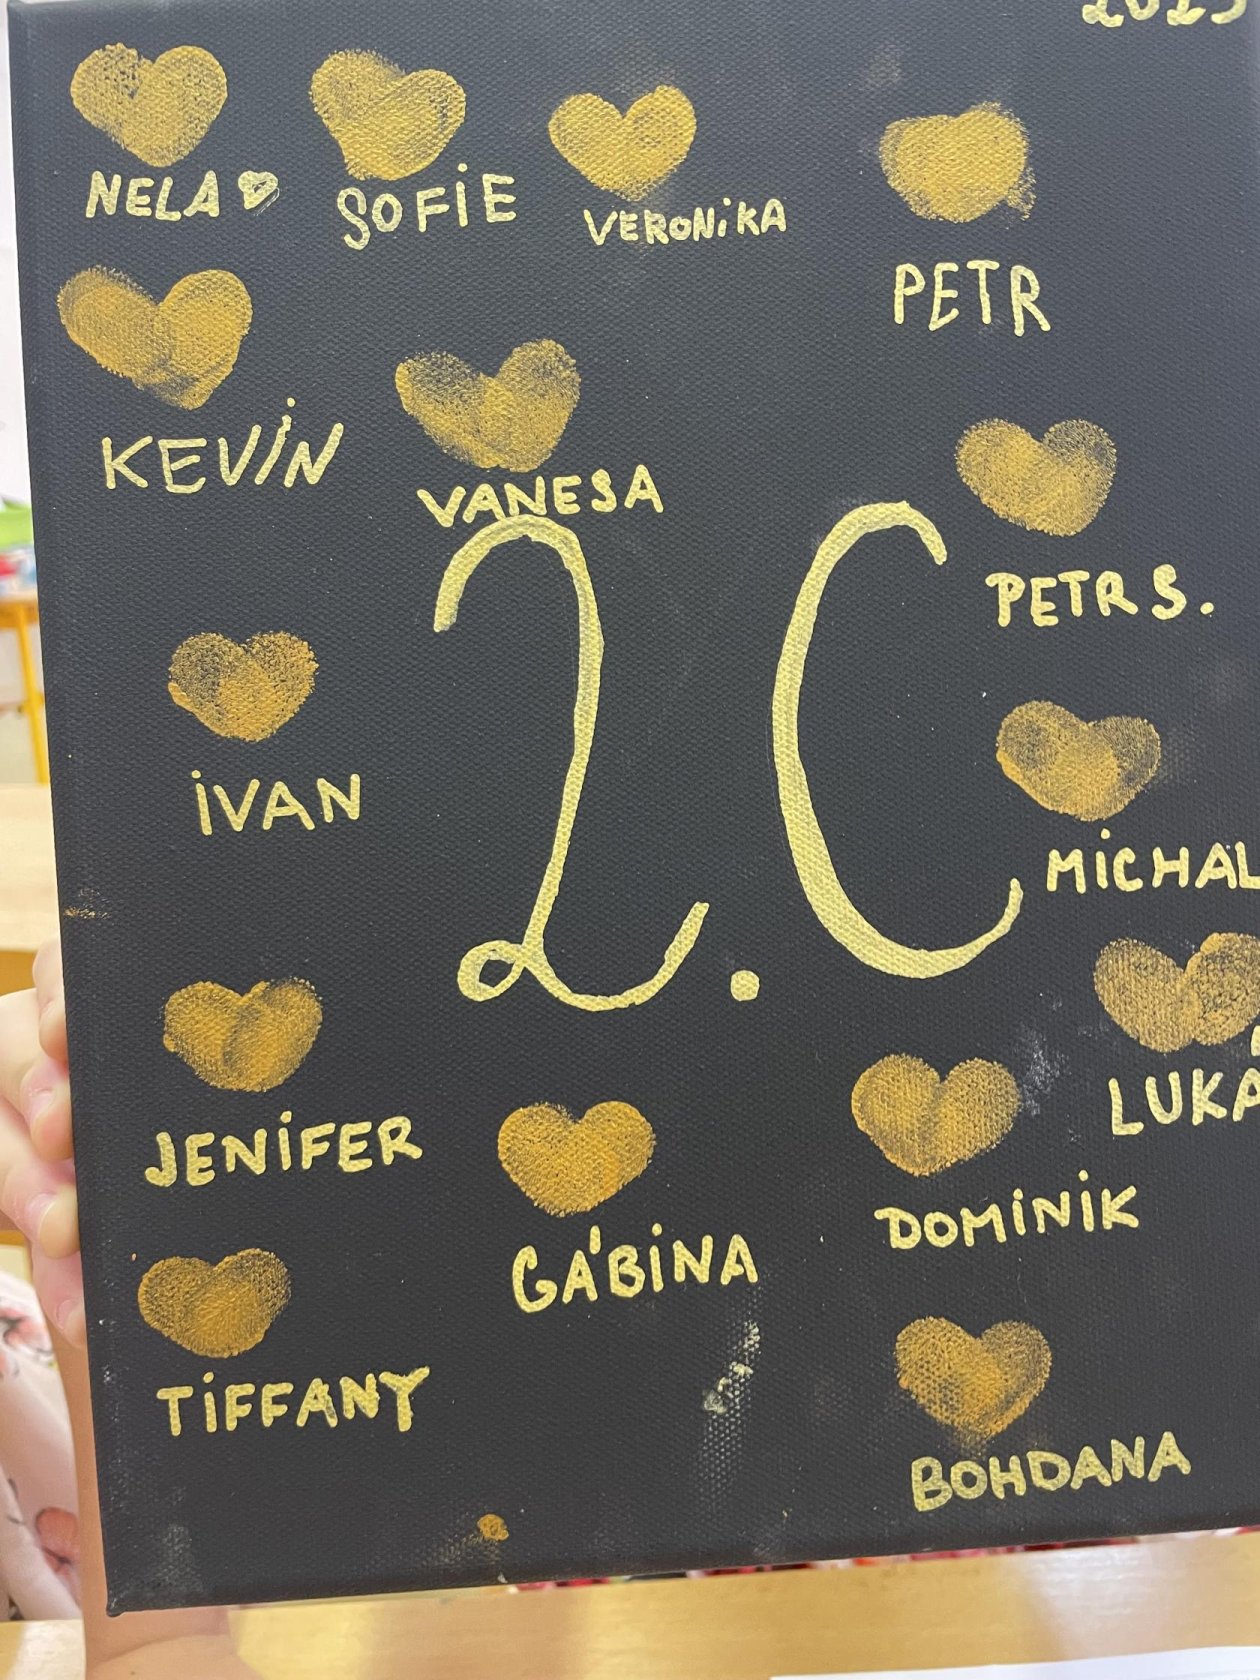 NELA
SOFIE
VERONIKA
PETR
KEVIN
VANESA
PETR S.
2.C
IVAN
MICHAL
JENIFER
GÁBINA
DOMINIK
TIFFANY
BOHDANA